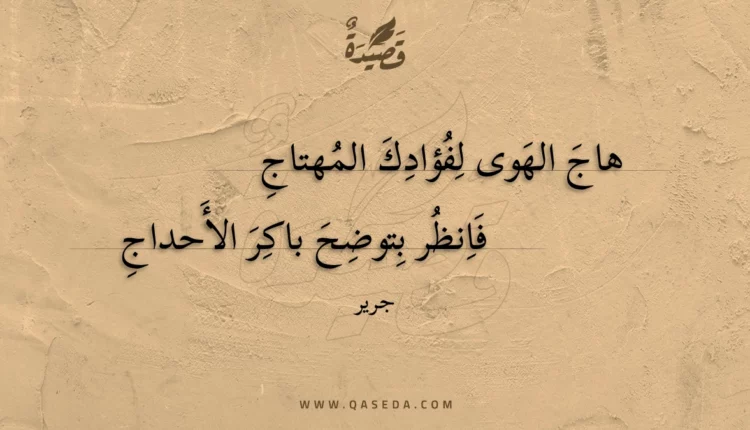 قَصِيدَةٌ
هاجَ الهَوى لِفُؤادِكَ المُهتاجِ
فَاِنظُر بِتوضِحَ باكِرَ الأَحداجِ
جرير
WWW.QASEDA.COM